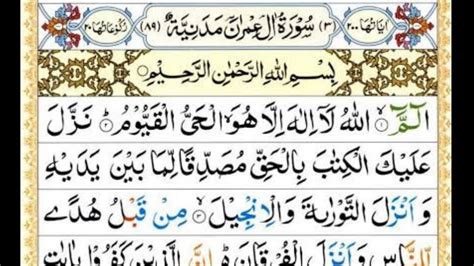 اٰیَاتُهَا ۲۰۰ (۳) سُوْرَةُ اٰلِ عِمْرٰنَ مَدَنِیَّةٌ (۸۹) رُكُوْعَاتُهَا ۲۰
بِسْمِ اللّٰهِ الرَّحْمٰنِ الرَّحِیْمِ
الٓمَّٓ ۙ۱ اللّٰهُ لَاۤ اِلٰهَ اِلَّا هُوَ الْحَیُّ الْقَیُّوْمُ ؕ۲ نَزَّلَ
عَلَیْكَ الْكِتٰبَ بِالْحَقِّ مُصَدِّقًا لِّمَا بَیْنَ یَدَیْهِ
وَ اَنْزَلَ التَّوْرٰىةَ وَ الْاِنْجِیْلَ ۙ۳ مِنْ قَبْلُ هُدًی
لِّلنَّاسِ وَ اَنْزَلَ الْفُرْقَانَ ؕ۬ اِنَّ الَّذِیْنَ كَفَرُوْا بِاٰیٰتِ